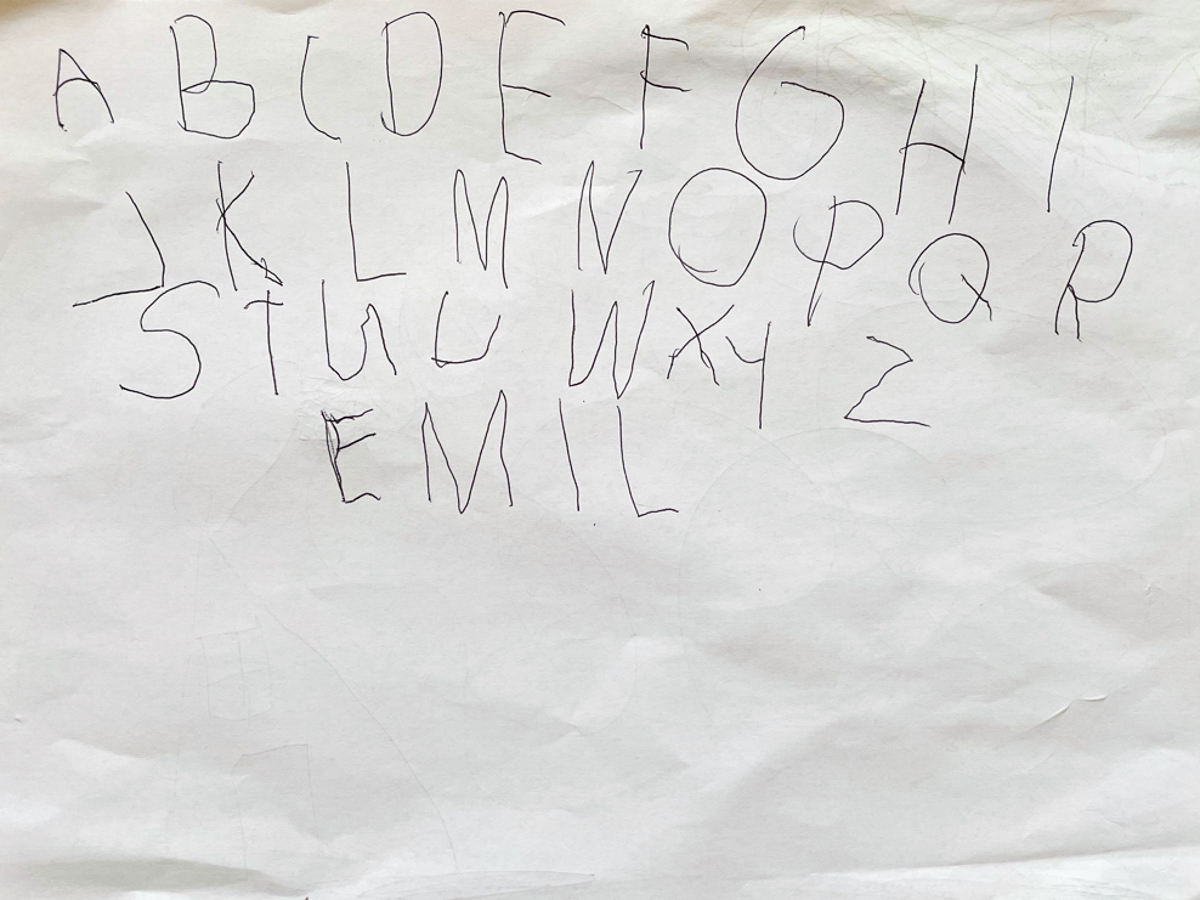 A B C D E F G H I
J K L M N O P Q R
S T U U W X Y Z
EMIL